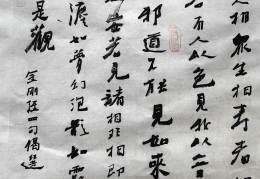 人相眾生相壽者相
若有人以色見我以音
邪道不能見如來
妄若見諸相非相即
如夢幻泡影如露
是觀
金剛經四句偈選